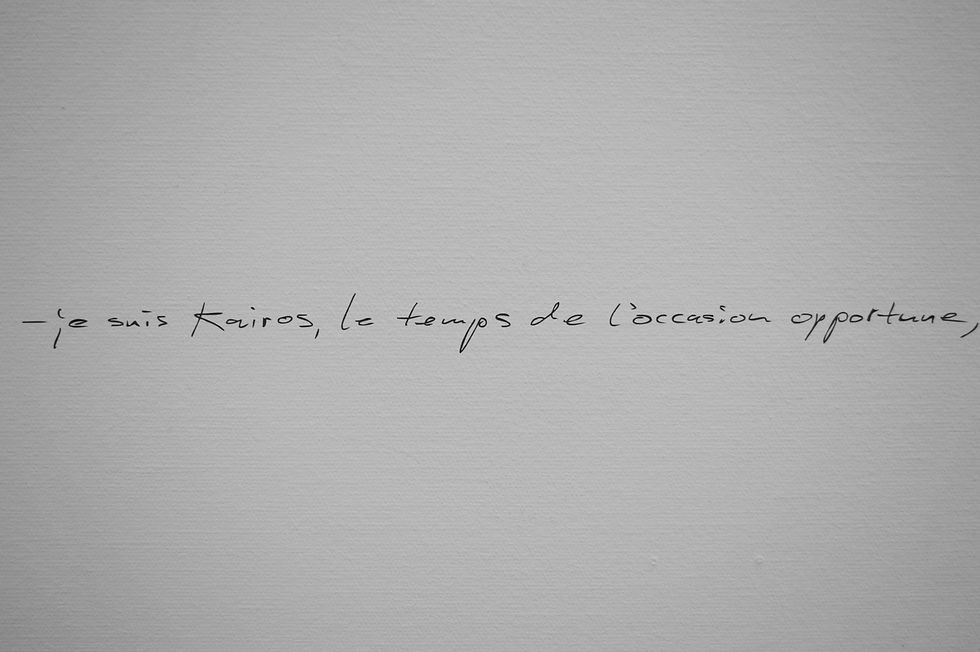 – je suis Kairos, le temps de l'occasion opportune,